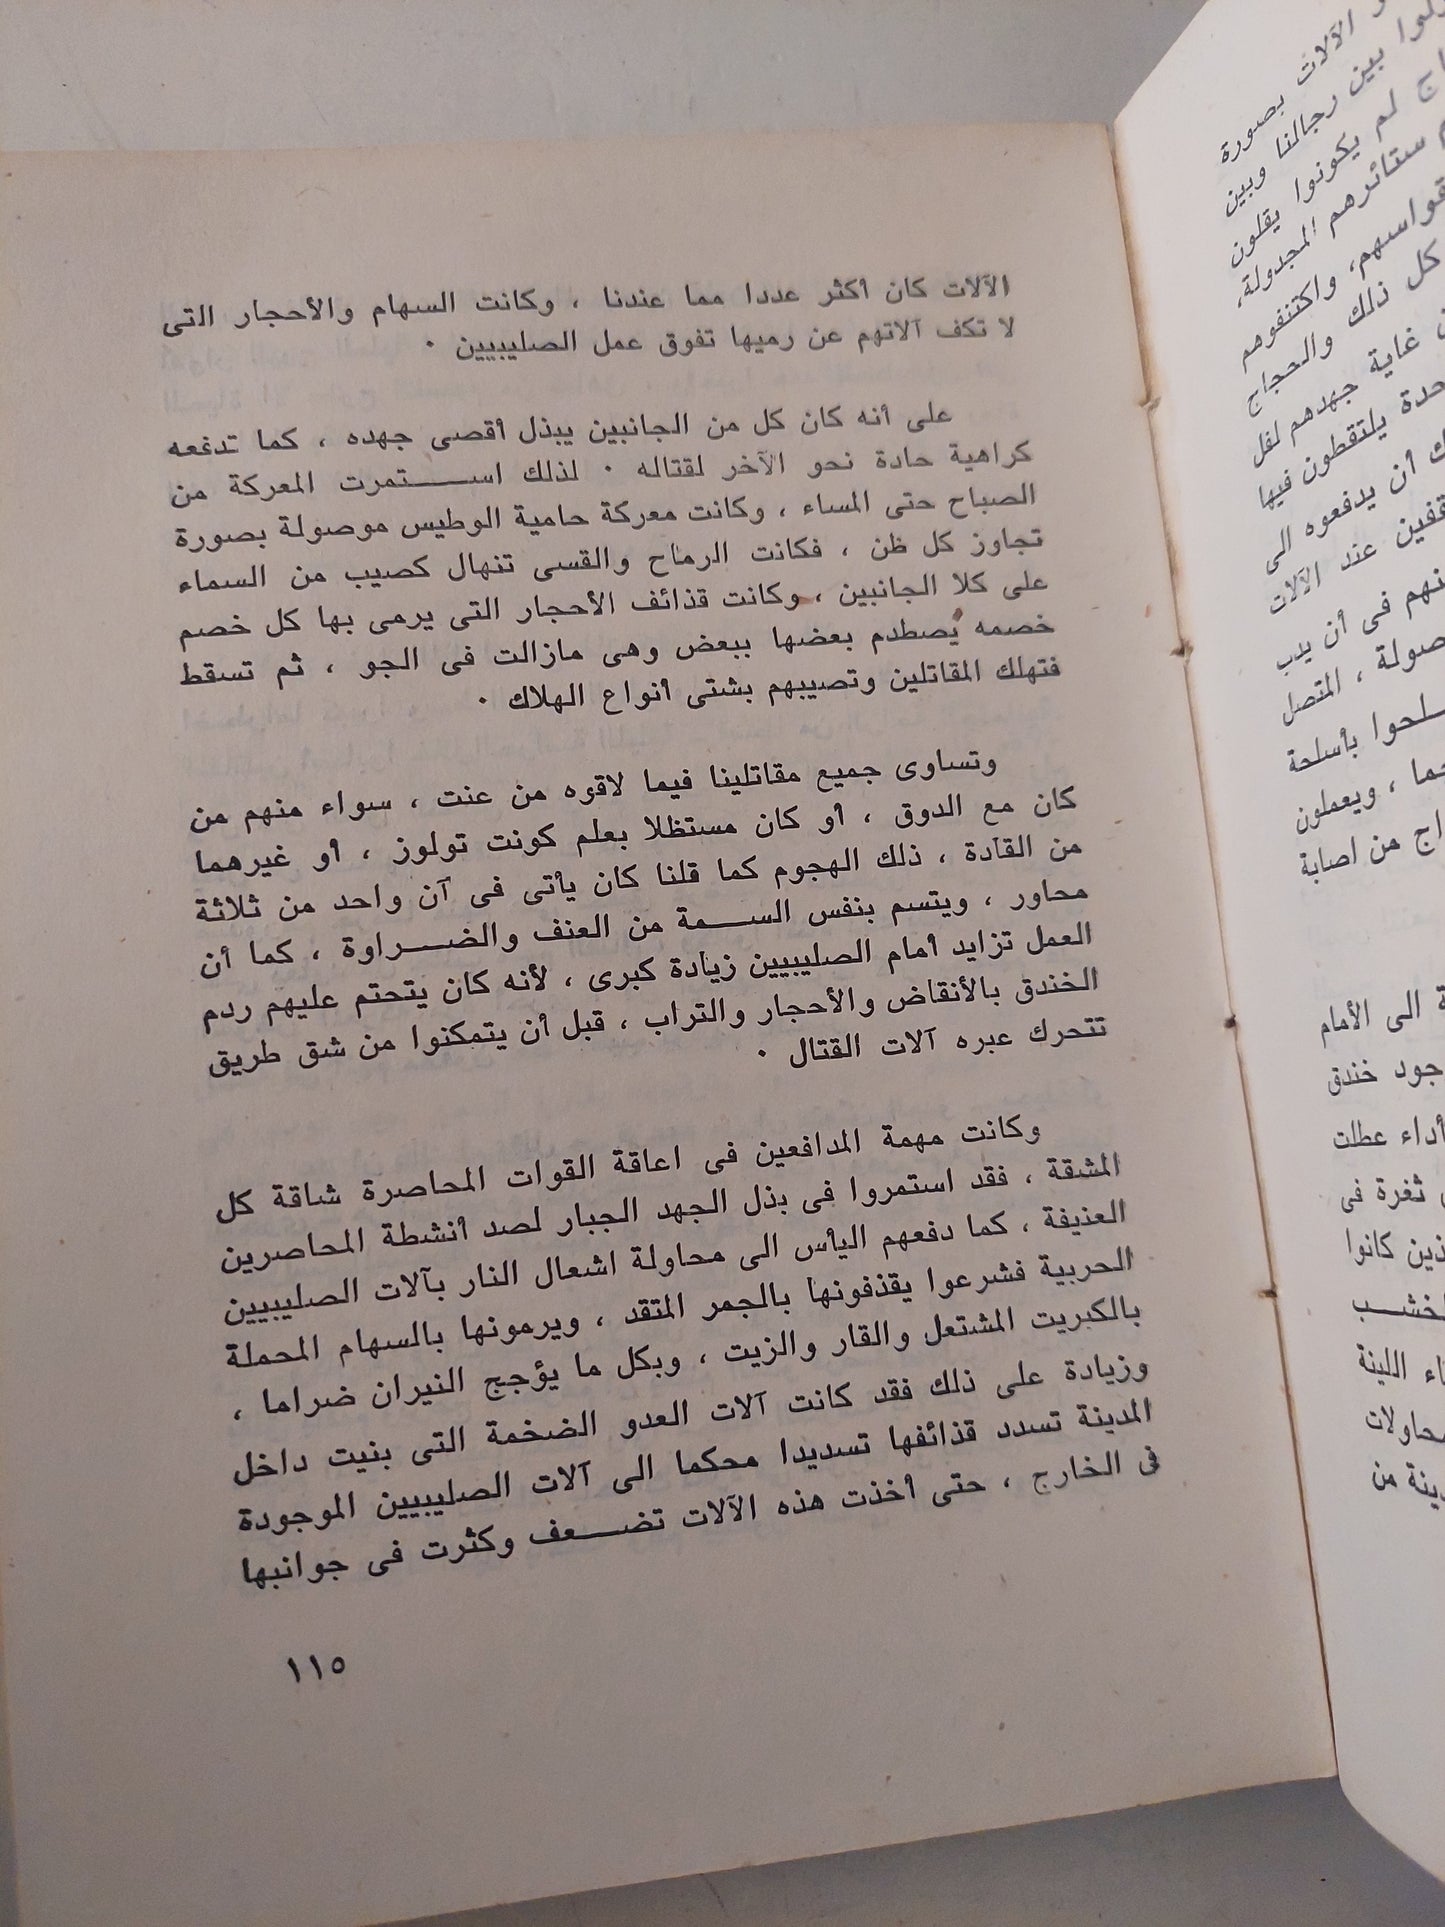 الآلات كان أكثر عددا مما عندنا ، وكانت السهام والأحجار التى
لا تكف آلاتهم عن رميها تفوق عمل الصليبيين ٠
على أنه كان كل من الجانبين يبذل أقصى جهده ، كما تدفعه
كراهية حادة نحو الآخر لقتاله ٠ لذلك استمرت المعركة من
الصباح حتى المساء ، وكانت معركة حامية الوطيس موصولة بصورة
تجاوز كل ظن ، فكانت الرماح والقسى تنهال كصيب من السماء
على كلا الجانبين ، وكانت قذائف الأحجار التى يرمى بها كل خصم
خصمه يصطدم بعضها ببعض وهى مازالت فى الجو ، ثم تسقط
فتهلك المقاتلين وتصيبهم بشتى أنواع الهلاك ٠
وتساوى جميع مقاتلينا فيما لاقوه من عنت ، سواء منهم من
كان مع الدوق ، أو كان مستظلا بعلم كونت تولوز ، أو غيرهما
من القادة ، ذلك الهجوم كما قلنا كان يأتى فى آن واحد من ثلاثة
محاور ، ويتسم بنفس السمة من العنف والضراوة ، كما أن
العمل تزايد أمام الصليبيين زيادة كبرى ، لأنه كان يتحتم عليهم ردم
الخندق بالأنقاض والأحجار والتراب ، قبل أن يتمكنوا من شق طريق
تتحرك عبره آلات القتال ٠
وكانت مهمة المدافعين فى اعاقة القوات المحاصرة شاقة كل
المشقة ، فقد استمروا فى بذل الجهد الجبار لصد أنشطة المحاصرين
العنيفة ، كما دفعهم اليأس الى محاولة اشعال النار بآلات الصليبيين
الحربية فشرعوا يقذفونها بالجمر المتقد ، ويرمونها بالسهام المحملة
بالكبريت المشتعل والقار والزيت ، وبكل ما يؤجج النيران ضراما ،
وزيادة على ذلك فقد كانت آلات العدو الضخمة التى بنيت داخل
المدينة تسدد قذائفها تسديدا محكما الى آلات الصليبيين الموجودة
فى الخارج ، حتى أخذت هذه الآلات تضعف وكثرت فى جوانبها
١١٥
الآلات بصورة
بين رجالنا وبين
لم يكونوا يقلون
ستائرهم المجدولة،
واكتنفوهم
كل ذلك والحجاج
غاية جهدهم لفل
يلتقطون فيها
أن يدفعوه الى
عند الآلات
فى أن يدب
، المتصل
بأسلحة
، ويعملون
من اصابة
الى الأمام
خندق
عطلت
ثغرة فى
كانوا
اللينة
من